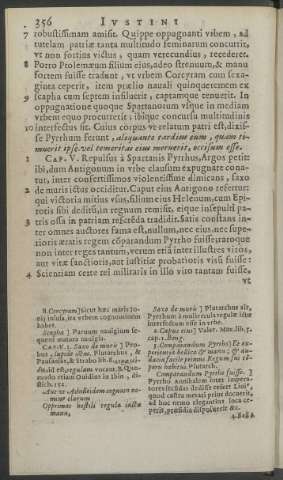 356 IVSTINI
7 robustissimam amisit. Quippe oppugnanti vrbem, ad
tutelam patriæ tanta multitudo feminarum concurrit,
vt non fortius victus, quam verecundius, recederet.
8 Porro Ptolemæum filium eius, adeo strenuum, & manu
fortem fuisse tradunt, vt vrbem Corcyram cum sexa-
ginta ceperit, item prælio nauali quinqueremem ex
9 scapha cum septem insiluerit, captamque tenuerit. In
oppugnatione quoque Spartanorum vsque in mediam
vrbem equo procurrerit, ibique concursu multitudinis
10 interfectus sit. Cuius corpus vt relatum patri est, dixis-
se Pyrrhum ferunt, aliquanto tardius eum, quam ti-
muerit ipse, vel temeritas eius meruerit, occisum esse.
1 CAP. V. Repulsus à Spartanis Pyrrhus, Argos petit:
ibi, dum Antigonum in vrbe clausum expugnare cona-
tur, inter confertissimos violentissime dimicans, saxo
2 de muris ictus occiditur. Caput eius Antigono refertur:
qui victoria mitius vsus, filium eius Helenum, cum Epi-
rotis sibi deditis, in regnum remisit, eique insepulti pa-
3 tris ossa in patriam referenda tradidit. Satis constans in-
ter omnes auctores fama est, nullum, nec eius, nec supe-
rioris ætatis regem comparandum Pyrrho fuisse, raroque
non inter reges tantum, verum etiā inter illustres viros,
aut vitæ sanctioris, aut iustitiæ probatioris visū fuisse:
4 Scientiam certe rei militaris in illo viro tantam fuisse,
vt
habet.
Scapha ] Paruum nauigium se-
CAP. V. 1. Saxo de muro ] Pro-
bus, lapide ictus. Plutarchus, &
Pausanias, & Strabo lib. 8.
Saxo de muro ] Plutarchus ait,
Pyrrhum à muliercula regula ictum
interfectum esse in vrbe.
2. Caput eius] Valer. Max. lib. 5.
cap. 1.
3. Comparandum Pyrrho] Et ex-
perientia bellica & manu; & au-
dacia facile primus Regum sui tē-
poris habetur. Plutarch.
Comparandum Pyrrho fuisse. ]
4. Scien-